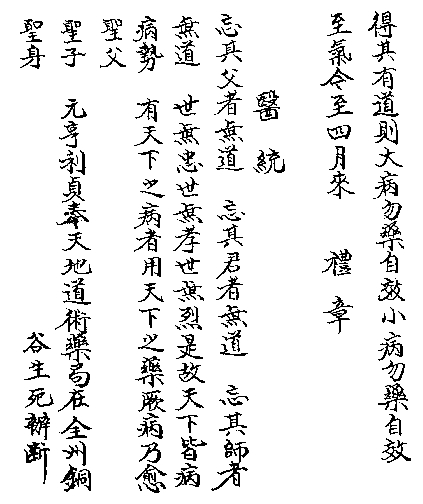 得其有道則大病勿藥自效小病勿藥自效
至氣今至四月來　禮章
醫統
忘其父者無道　忘其君者無道　忘其師者
無道　世無忠世無孝世無烈是故天下皆病
病勢　有天下之病者用天下之藥厥病乃愈
聖父
聖子　元亨利貞奉天地道術藥局在全州銅
聖身　谷生死辦斷